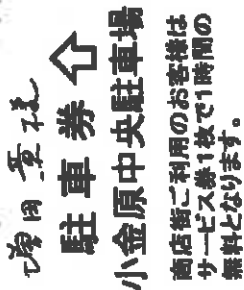 駐車券
小金原中央駐車場
商店街ご利用のお客様は
サービス券1枚で1時間の
無料となります。